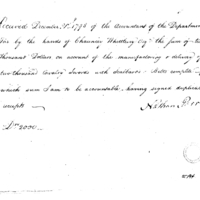 Received December 8th 1798 of the Commanders of the Department
by the hands of Chauncey Whittlesey Esqr the sum of
thousand Dollars on account of the manufacturing & delivery of
two thousand Cavalry Swords with scabbards Belts complete
which sum I am to be accountable, having signed duplicate
receipts
Nathan
Drs 2000